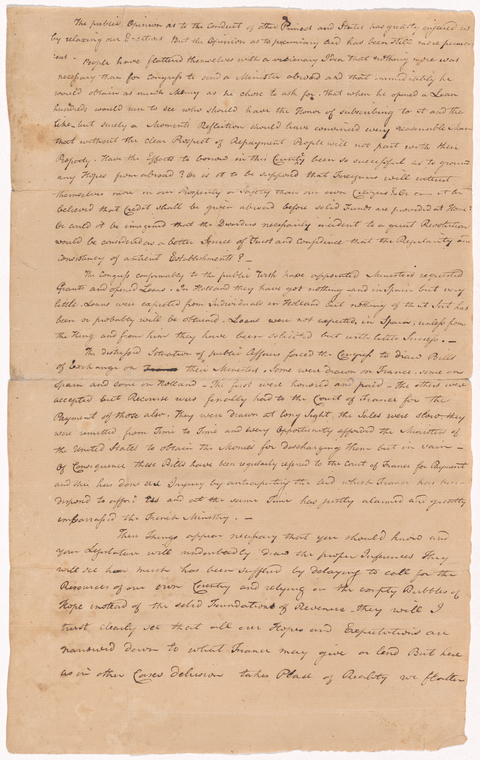 The public Opinion as to the Conduct of other Princes and States has greatly injured us
by relaxing our Exertions But the Opinion as to pecuniary Aid has been still more pernici
ous. People have flattered themselves with a visionary Idea that nothing more was
necessary than for Congress to send a Minister abroad and that immediately he
would obtain as much Money as he chose to ask for. that when he opened a Loan
hundreds would run to see who should have the Honor of subscribing to it and the
like but surely a Moments Reflection should have convinced every reasonable Man
that without the clear Prospect of Repayment People will not part with their
Property. Have the Efforts to borrow in this Country been so successful as to ground
any Hopes from abroad? Or is it to be supposed that Foreigners will interest
themselves more in our Prosperity or Safety than our own Citizens? Or can it be
believed that Credit shall be given abroad before solid Funds are provided at Home?
Or could it be imagined that the Disorders necessarily incident to a great Revolution
would be considered as a better Source of Trust and Confidence that the Regularity and
Consistency of ancient Establishments?
The Congress conformably to the public have appointed Ministers requested
Grants and opened Loans. In Holland they have got nothing and in Spain but very
little. Loans were expected from Individuals in Holland but nothing of that kind has
been or probably will be obtained. Loans were not expected in Spain, unless from
the King and from him they have been sollicited but with little Success.
The distressed Situation of public Affairs forced the Congress to draw Bills
of Exchange on their Ministers. Some were drawn on France, some on
Spain and some on Holland. The first were honored and paid. the others were
accepted but Recourse was finally had to the Court of France for the
Payment of those also. They were drawn at long Sight, the Sales were slow they
were remitted from Time to Time and every Opportunity afforded the Ministers of
the United States to obtain the Monies for discharging them but in vain
Of Consequence these Bills have been regularly referred to the Court of France for Payment
and this has done us Injury by anticipating the Aid which France has been
disposed to afford us and at the same Time has justly alarmed and greatly
embarrassed the French Ministry.
These Things appear necessary that you should know and
your Legislature will undoubtedly draw the proper Inferences They
will see how much has been suffered by delaying to call for the
Resources of our own Country and relying on the empty Bubbles of
Hope instead of the solid Foundations of Revenue. they will I
trust clearly see that all our Hopes and Expectations are
narrowed down to what France may give or lend But here
as in other Cases delusion takes Place of Reality we flatter